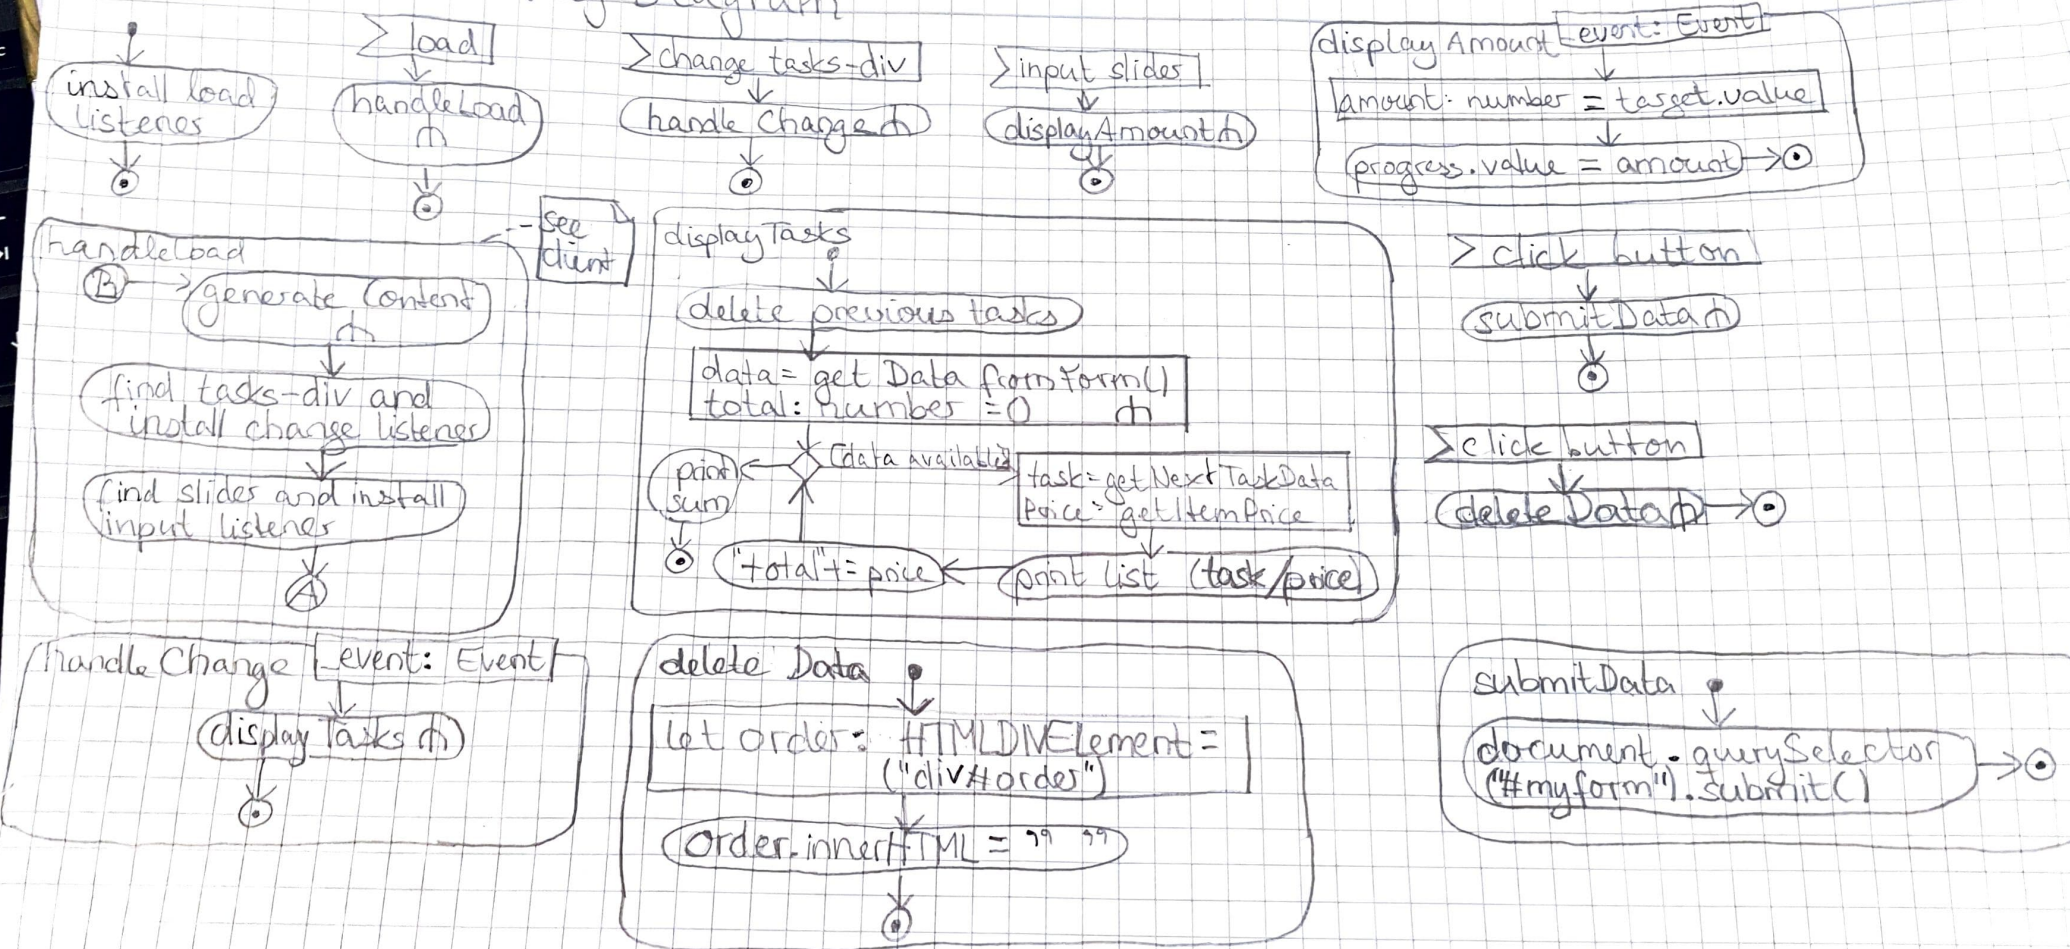 install load
listener
load
handleLoad
change tasks-div
handle Change
input slides
displayAmount
displayAmount event: Event
amount: number = target.value
progress.value = amount
handleLoad
B
generate Content
find tasks-div and
install change listener
find slides and install
input listener
A
see
client
displayTasks
delete previous tasks
data = get Data from Form()
total: number = 0
[data available]
print
sum
task = getNextTaskData
Price = getItemPrice
print list (task/price)
"total" += price
click button
submitData
click button
deleteData
handle Change event: Event
display Tasks
delete Data
let order: HTMLDIVElement =
("div#order")
order.innerHTML = " "
submitData
document.querySelector
("#myform").submit()